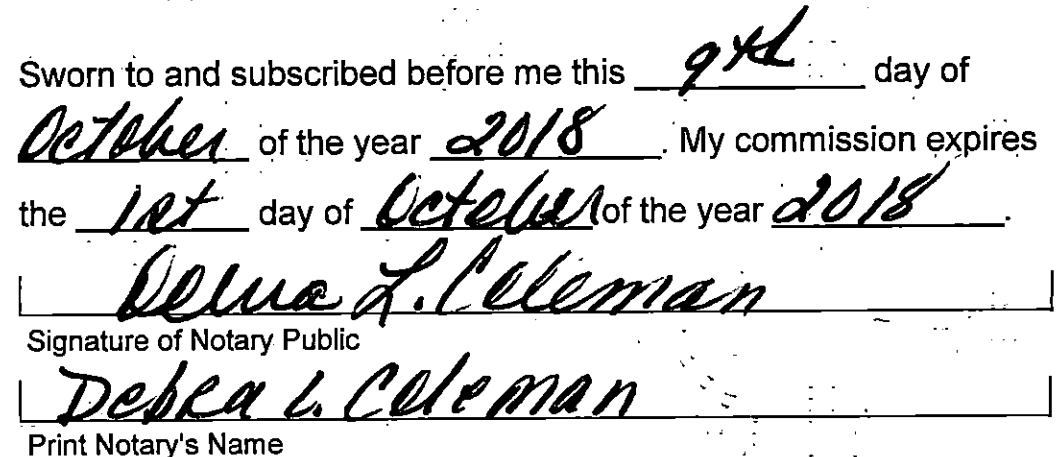 Sworn to and subscribed before me this 9th day of
October of the year 2018. My commission expires
the 1st day of October of the year 2018.
Debra L. Coleman
Signature of Notary Public
Debra L. Coleman
Print Notary's Name